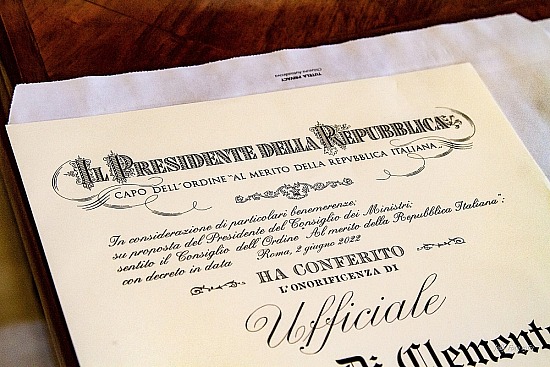 TUTELA PRIVACY
IL PRESIDENTE DELLA REPUBBLICA
CAPO DELL'ORDINE "AL MERITO DELLA REPVBBLICA ITALIANA"
In considerazione di particolari benemerenze;
su proposta del Presidente del Consiglio dei Ministri;
sentito il Consiglio dell'Ordine "Al merito della Repubblica Italiana";
con decreto in data Roma, 2 giugno 2022
HA CONFERITO
L'ONORIFICENZA DI
Ufficiale
Di Clement